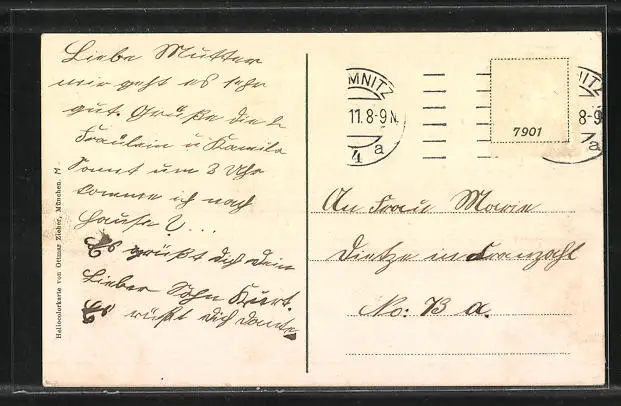 Liebe Mutter
mir geht es sehr
gut. Grüße die
Fräulein u Familie
Sonnt um 3 Uhr
komme ich nach
Hause ? ...
Es grüßt dich dein
Lieber Sohn Kurt.
Es grüßt dich Tante
Heliocolorkarte von Ottmar Zieher, München. M
MNITZ
11.8-9N.
4 a
NITZ
8-9
a
7901
An Frau Marie
Dietze in
No: 73 d.